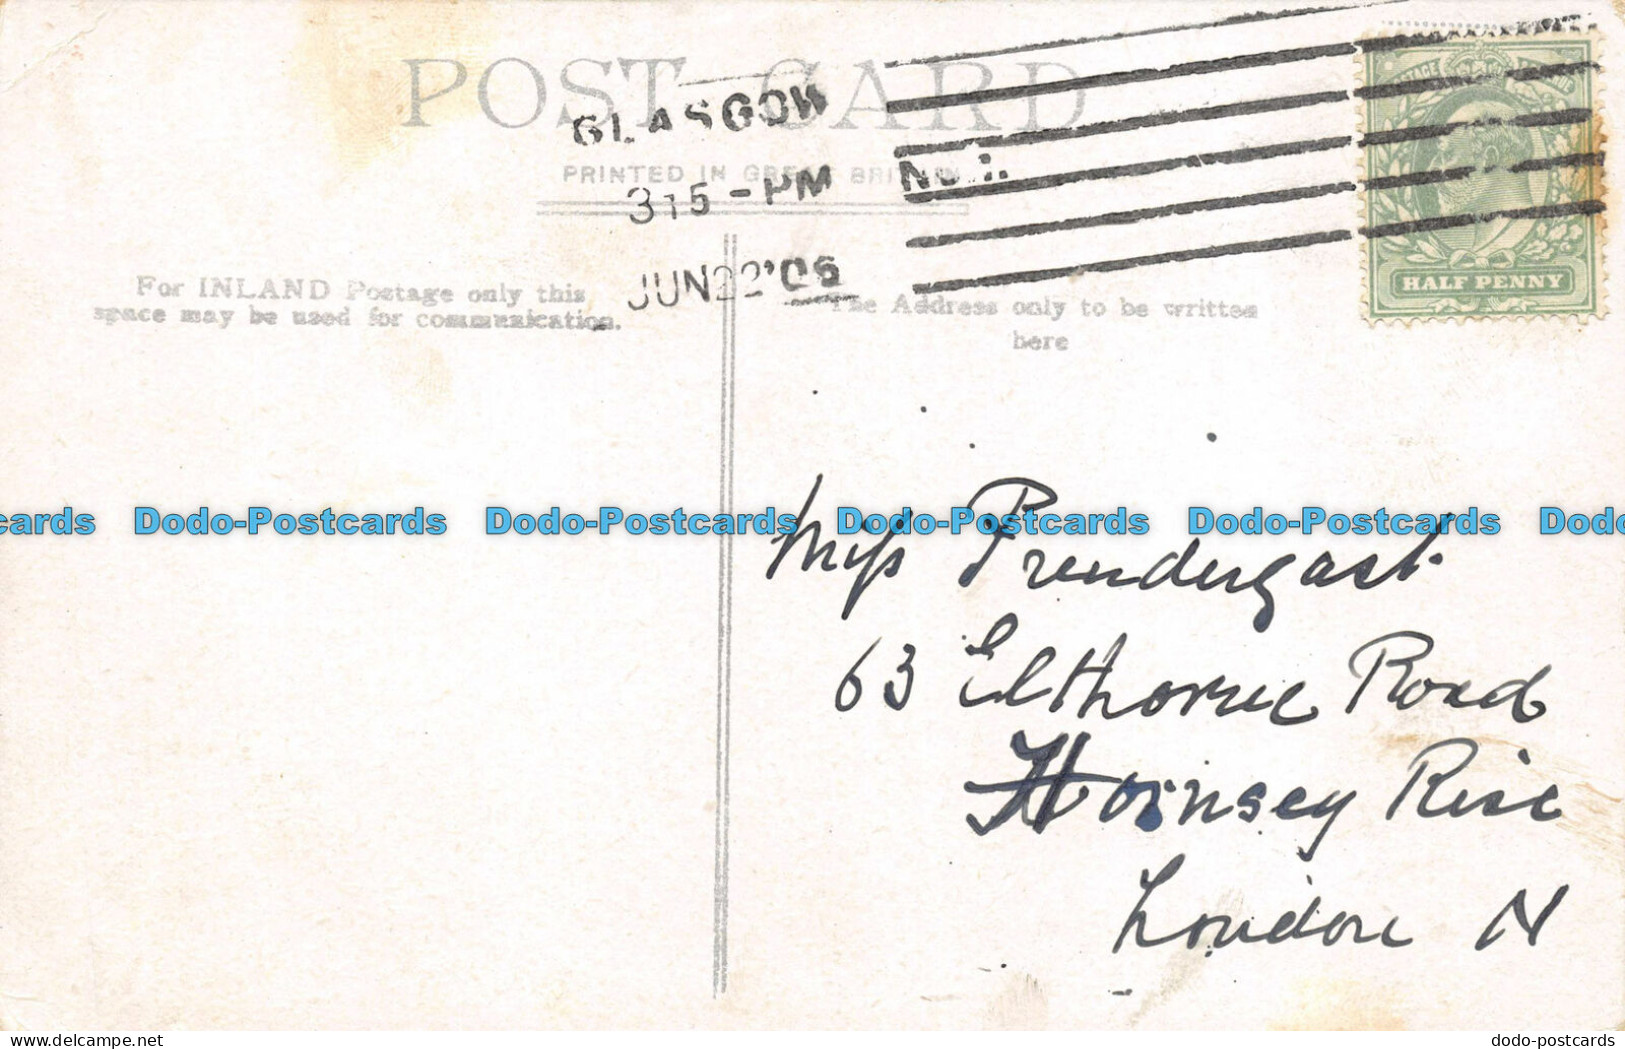 POST CARD
PRINTED IN GREAT BRITAIN
GLASGOW
315-PM
JUN22'05
No 1.
POSTAGE
HALF PENNY
For INLAND Postage only this
space may be used for communication.
The Address only to be written
here
Miss Prendergast
63 Elthorne Road
Hornsey Rise
London N
cards Dodo-Postcards Dodo-Postcards Dodo-Postcards Dodo-Postcards Dodo
dodo-postcards